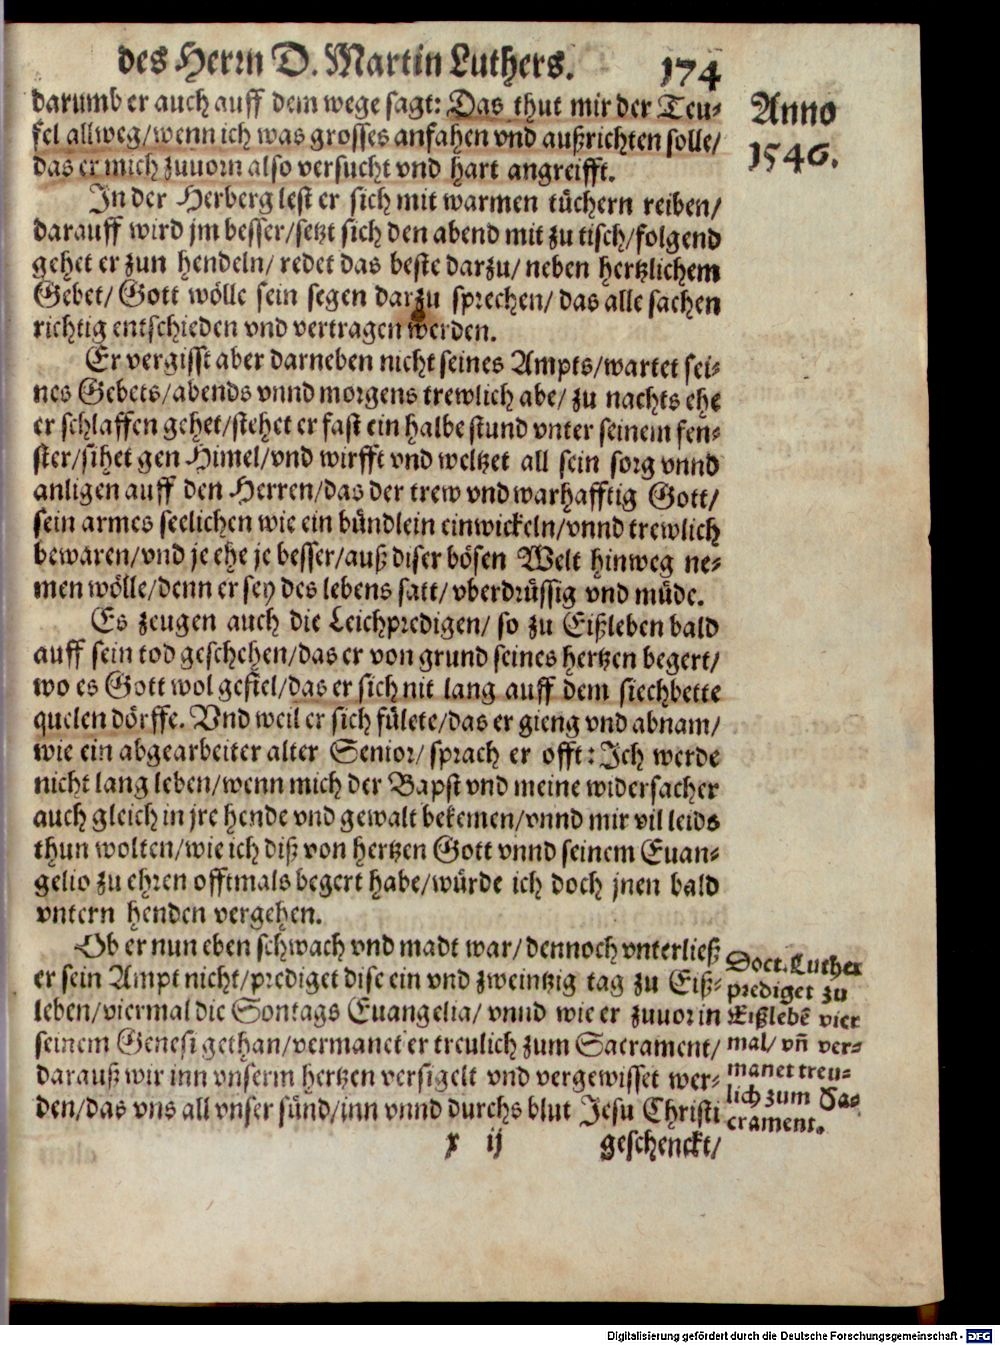 des Herrn D. Martin Luthers. 174
darumb er auch auff dem wege sagt: Das thut mir der Teu-
fel allweg/wenn ich was grosses anfahen vnd außrichten solle/
das er mich zuuorn also versucht vnd hart angreifft.
Anno
1546.
In der Herberg lest er sich mit warmen tüchern reiben/
darauff wird jm besser/setzt sich den abend mit zu tisch/folgend
gehet er zun hendeln/ redet das beste darzu/ neben hertzlichem
Gebet/ Gott wölle sein segen darzu sprechen/ das alle sachen
richtig entschieden vnd vertragen werden.
Er vergisst aber darneben nicht seines Ampts/wartet sei-
nes Gebets/abends vnnd morgens trewlich abe/ zu nachts ehe
er schlaffen gehet/stehet er fast ein halbe stund vnter seinem fen-
ster/sihet gen Himel/vnd wirfft vnd weltzet all sein sorg vnnd
anligen auff den Herren/das der trew vnd warhafftig Gott/
sein armes seelichen wie ein bündlein einwickeln/vnnd trewlich
bewaren/vnd je ehe je besser/auß diser bösen Welt hinweg ne-
men wölle/denn er sey des lebens satt/ vberdrüssig vnd müde.
Es zeugen auch die Leichpredigen/ so zu Eißleben bald
auff sein tod geschehen/das er von grund seines hertzen begert/
wo es Gott wol gefiel/das er sich nit lang auff dem siechbette
quelen dörffe. Vnd weil er sich fülete/das er gieng vnd abnam/
wie ein abgearbeiter alter Senior/ sprach er offt: Ich werde
nicht lang leben/wenn mich der Bapst vnd meine widersacher
auch gleich in jre hende vnd gewalt bekemen/vnnd mir vil leids
thun wolten/wie ich diß von hertzen Gott vnnd seinem Euan-
gelio zu ehren offtmals begert habe/würde ich doch jnen bald
vntern henden vergehen.
Ob er nun eben schwach vnd madt war/ dennoch vnterließ
er sein Ampt nicht/prediget dise ein vnd zweintzig tag zu Eiß-
leben/viermal die Sontags Euangelia/ vnnd wie er zuuor in
seinem Genesi gethan/vermanet er treulich zum Sacrament/
darauß wir inn vnserm hertzen versigelt vnd vergewisset wer-
den/das vns all vnser sünd/inn vnnd durchs blut Jesu Christi
Doct. Luther
prediget zu
Eißlebē vier
mal/ vn̄ ver-
manet treu-
lich zum Sa-
crament.
x ij geschenckt/
Digitalisierung gefördert durch die Deutsche Forschungsgemeinschaft - DFG